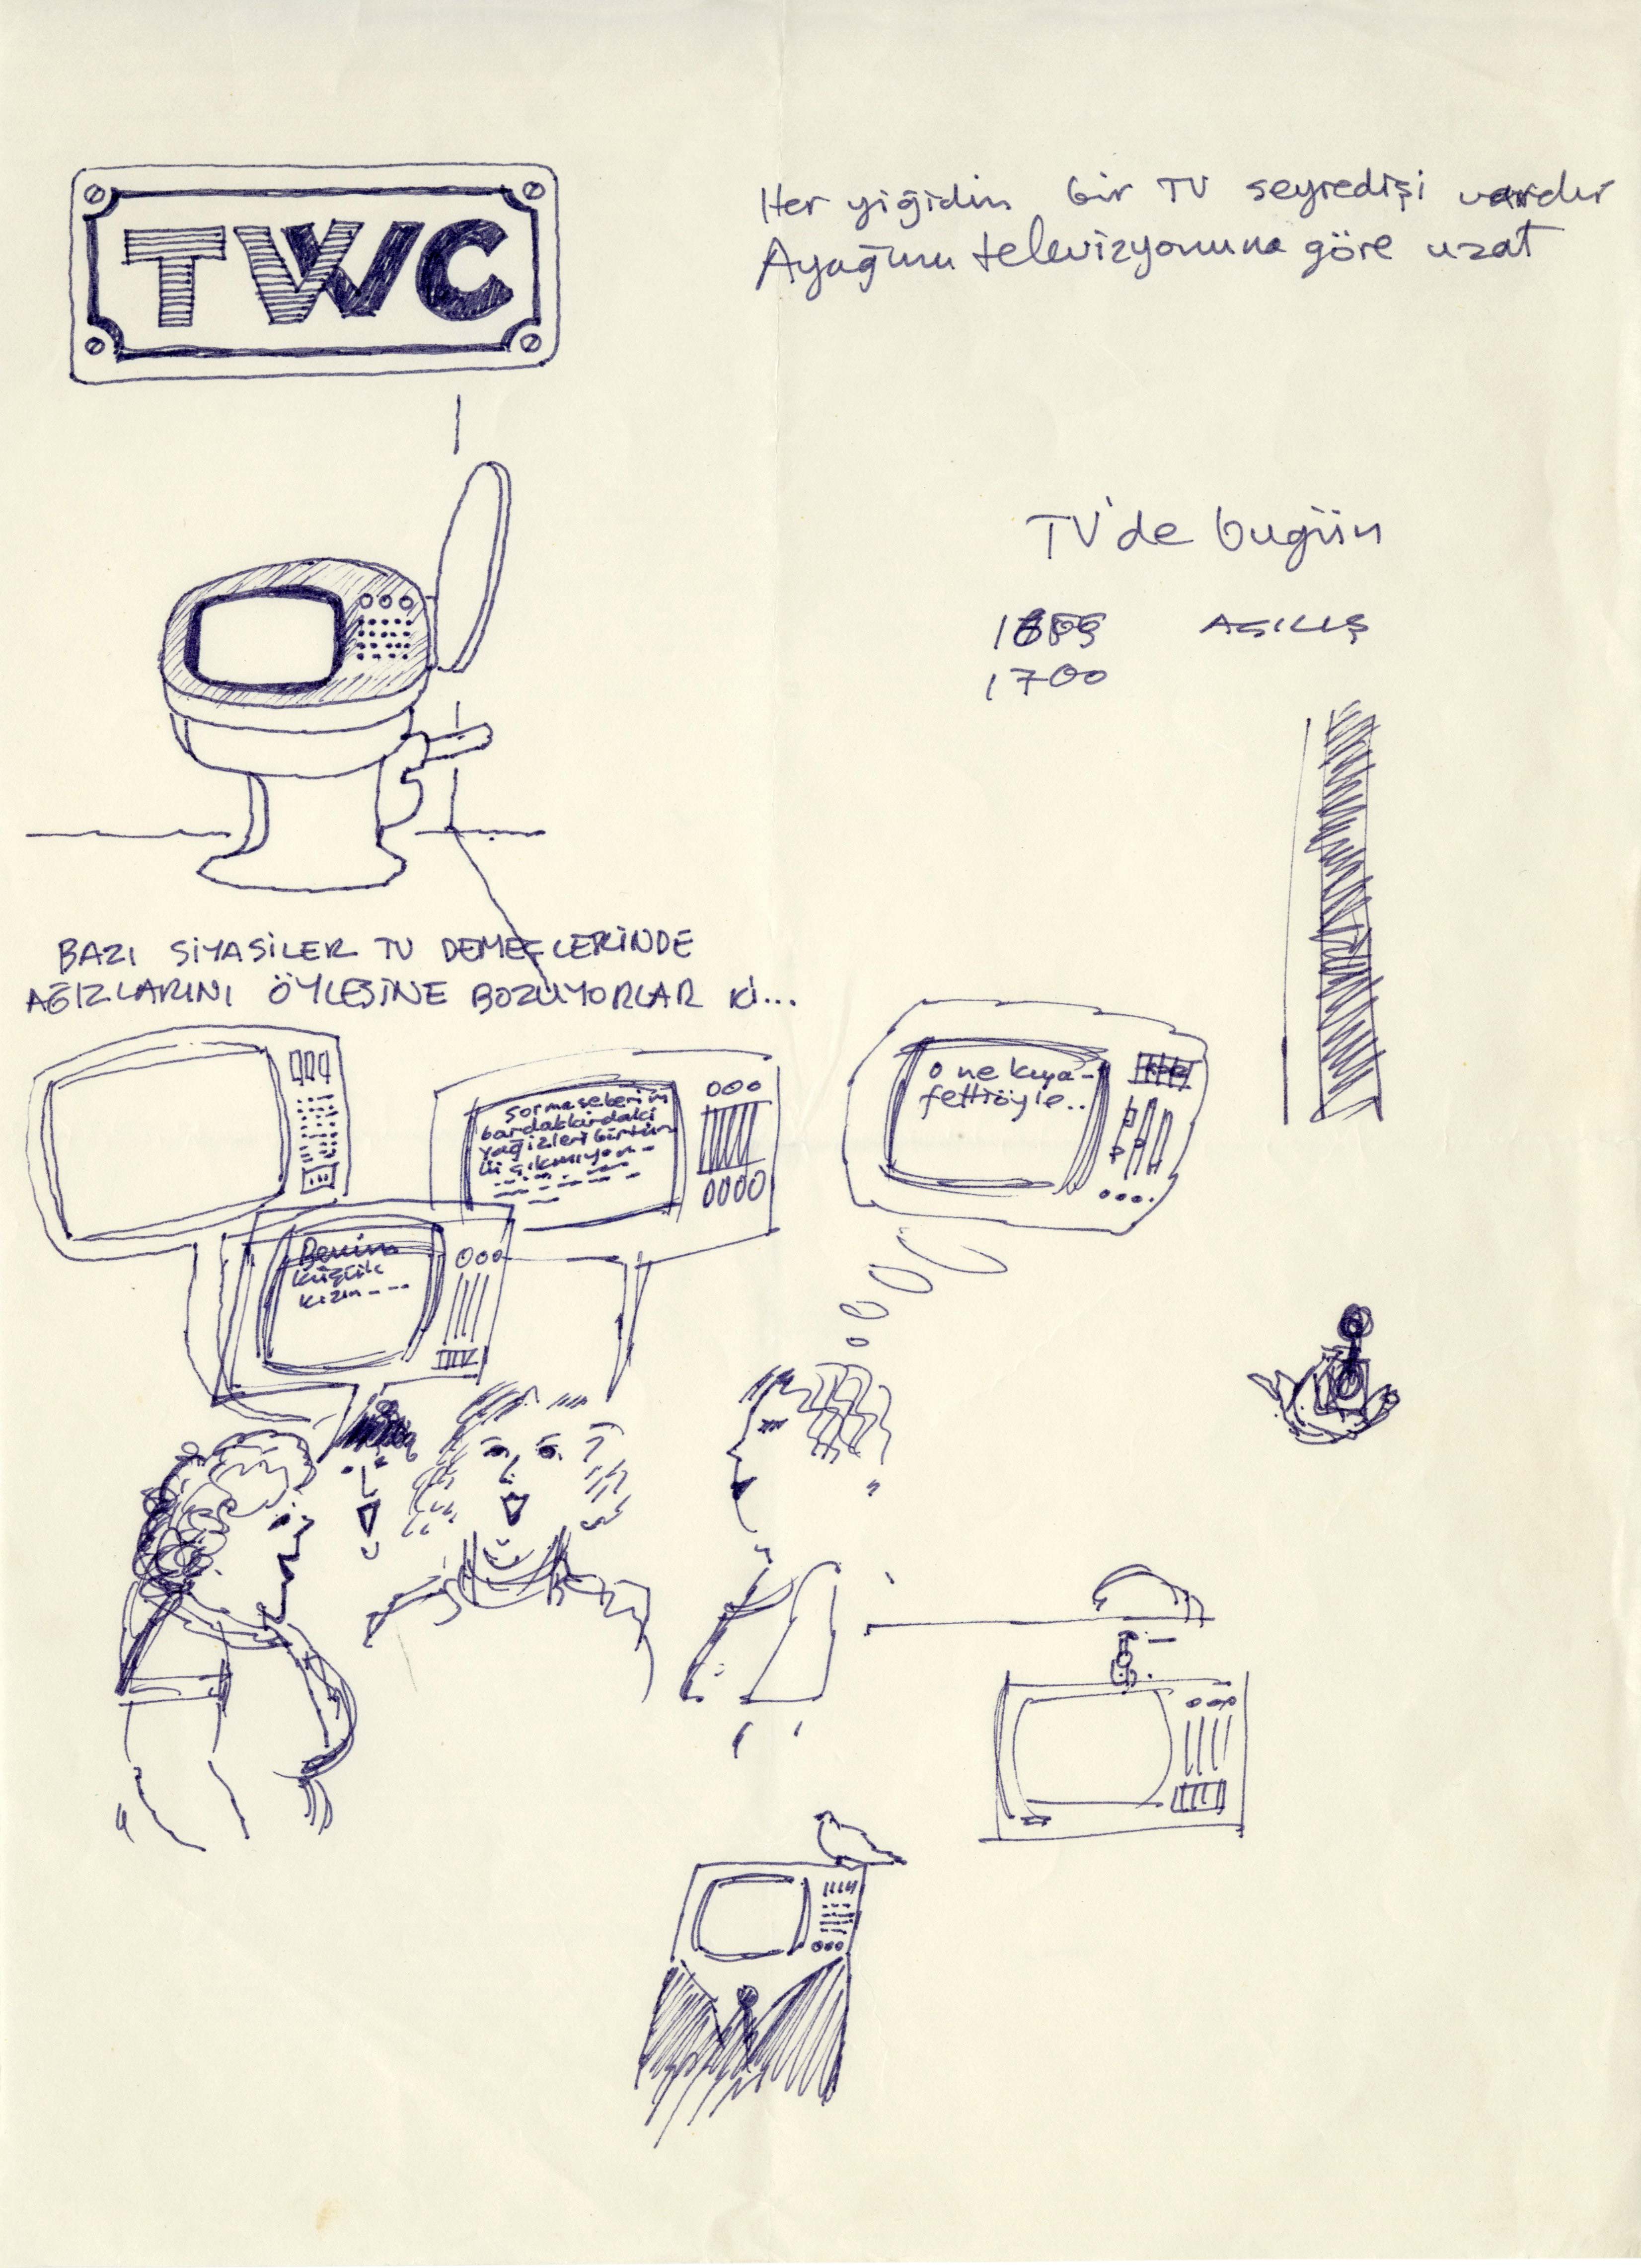 TWC
Her yiğidin bir TV seyredişi vardır
Ayağını televizyonuna göre uzat
TV'de bugün
AÇILIŞ
1700
BAZI SİYASİLER TV DEMEÇLERİNDE
AĞIZLARINI ÖYLESİNE BOZUYORLAR Kİ...
Sorma şekerim
bardaklardaki
yağ izleri bir türlü
çıkmıyor--
O ne kıya-
fetti öyle..
Benim
küçük
kızım---